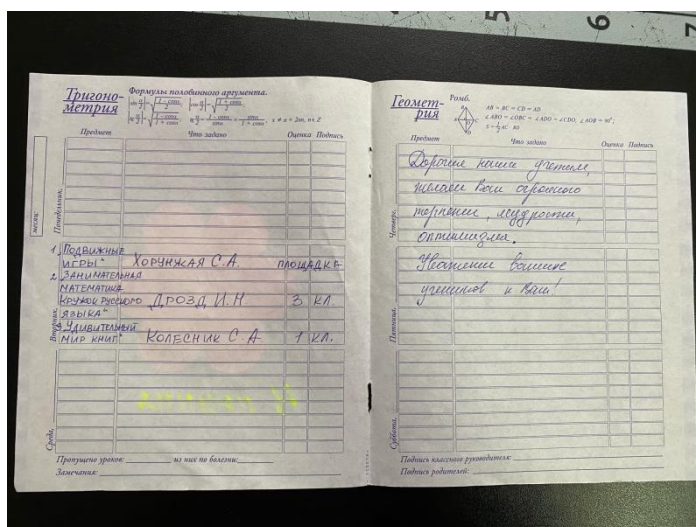 5
6
7
Тригоно-
метрия
Формулы половинного аргумента.
Предмет
Что задано
Оценка Подпись
месяц:
Понедельник,
1. Подвижные
игры" Хорунжая С.А. площадка
2. Занимательная
математика
Кружок русского Дрозд И.Н 3 кл.
языка"
3. Удивительный
мир книг" Колесник С.А 1 кл.
Вторник,
Среда,
Пропущено уроков: из них по болезни:
Замечания:
Геомет-
рия
Ромб.
AB = BC = CD = AD
∠ABO = ∠OBC = ∠ADO = ∠CDO, ∠AOB = 90°;
Предмет
Что задано
Оценка Подпись
Дорогие наши учителя,
желаем Вам огромного
терпения, мудрости,
оптимизма.
Уважения ваших
учеников к Вам!
Четверг,
Пятница,
Суббота,
Подпись классного руководителя:
Подпись родителей: